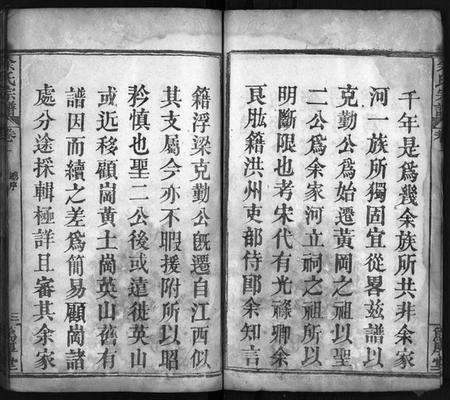 千年是爲幾余族所共非余家
河一族所獨固宜從畧兹譜以
克勤公爲始遷黃岡之祖以聖
二公爲余家河立祠之祖所以
明斷限也考宋代有光祿卿余
良肱籍洪州吏部侍郎余知言
籍浮梁克勤公旣遷自江西似
其支屬今亦不暇援附所以昭
矜慎也聖二公後或遠徙英山
或近移顧崗黃土崗英山舊有
譜因而續之差爲簡易顧崗諸
處分途採輯極詳且審其余家
余氏宗譜 卷一 總序 三